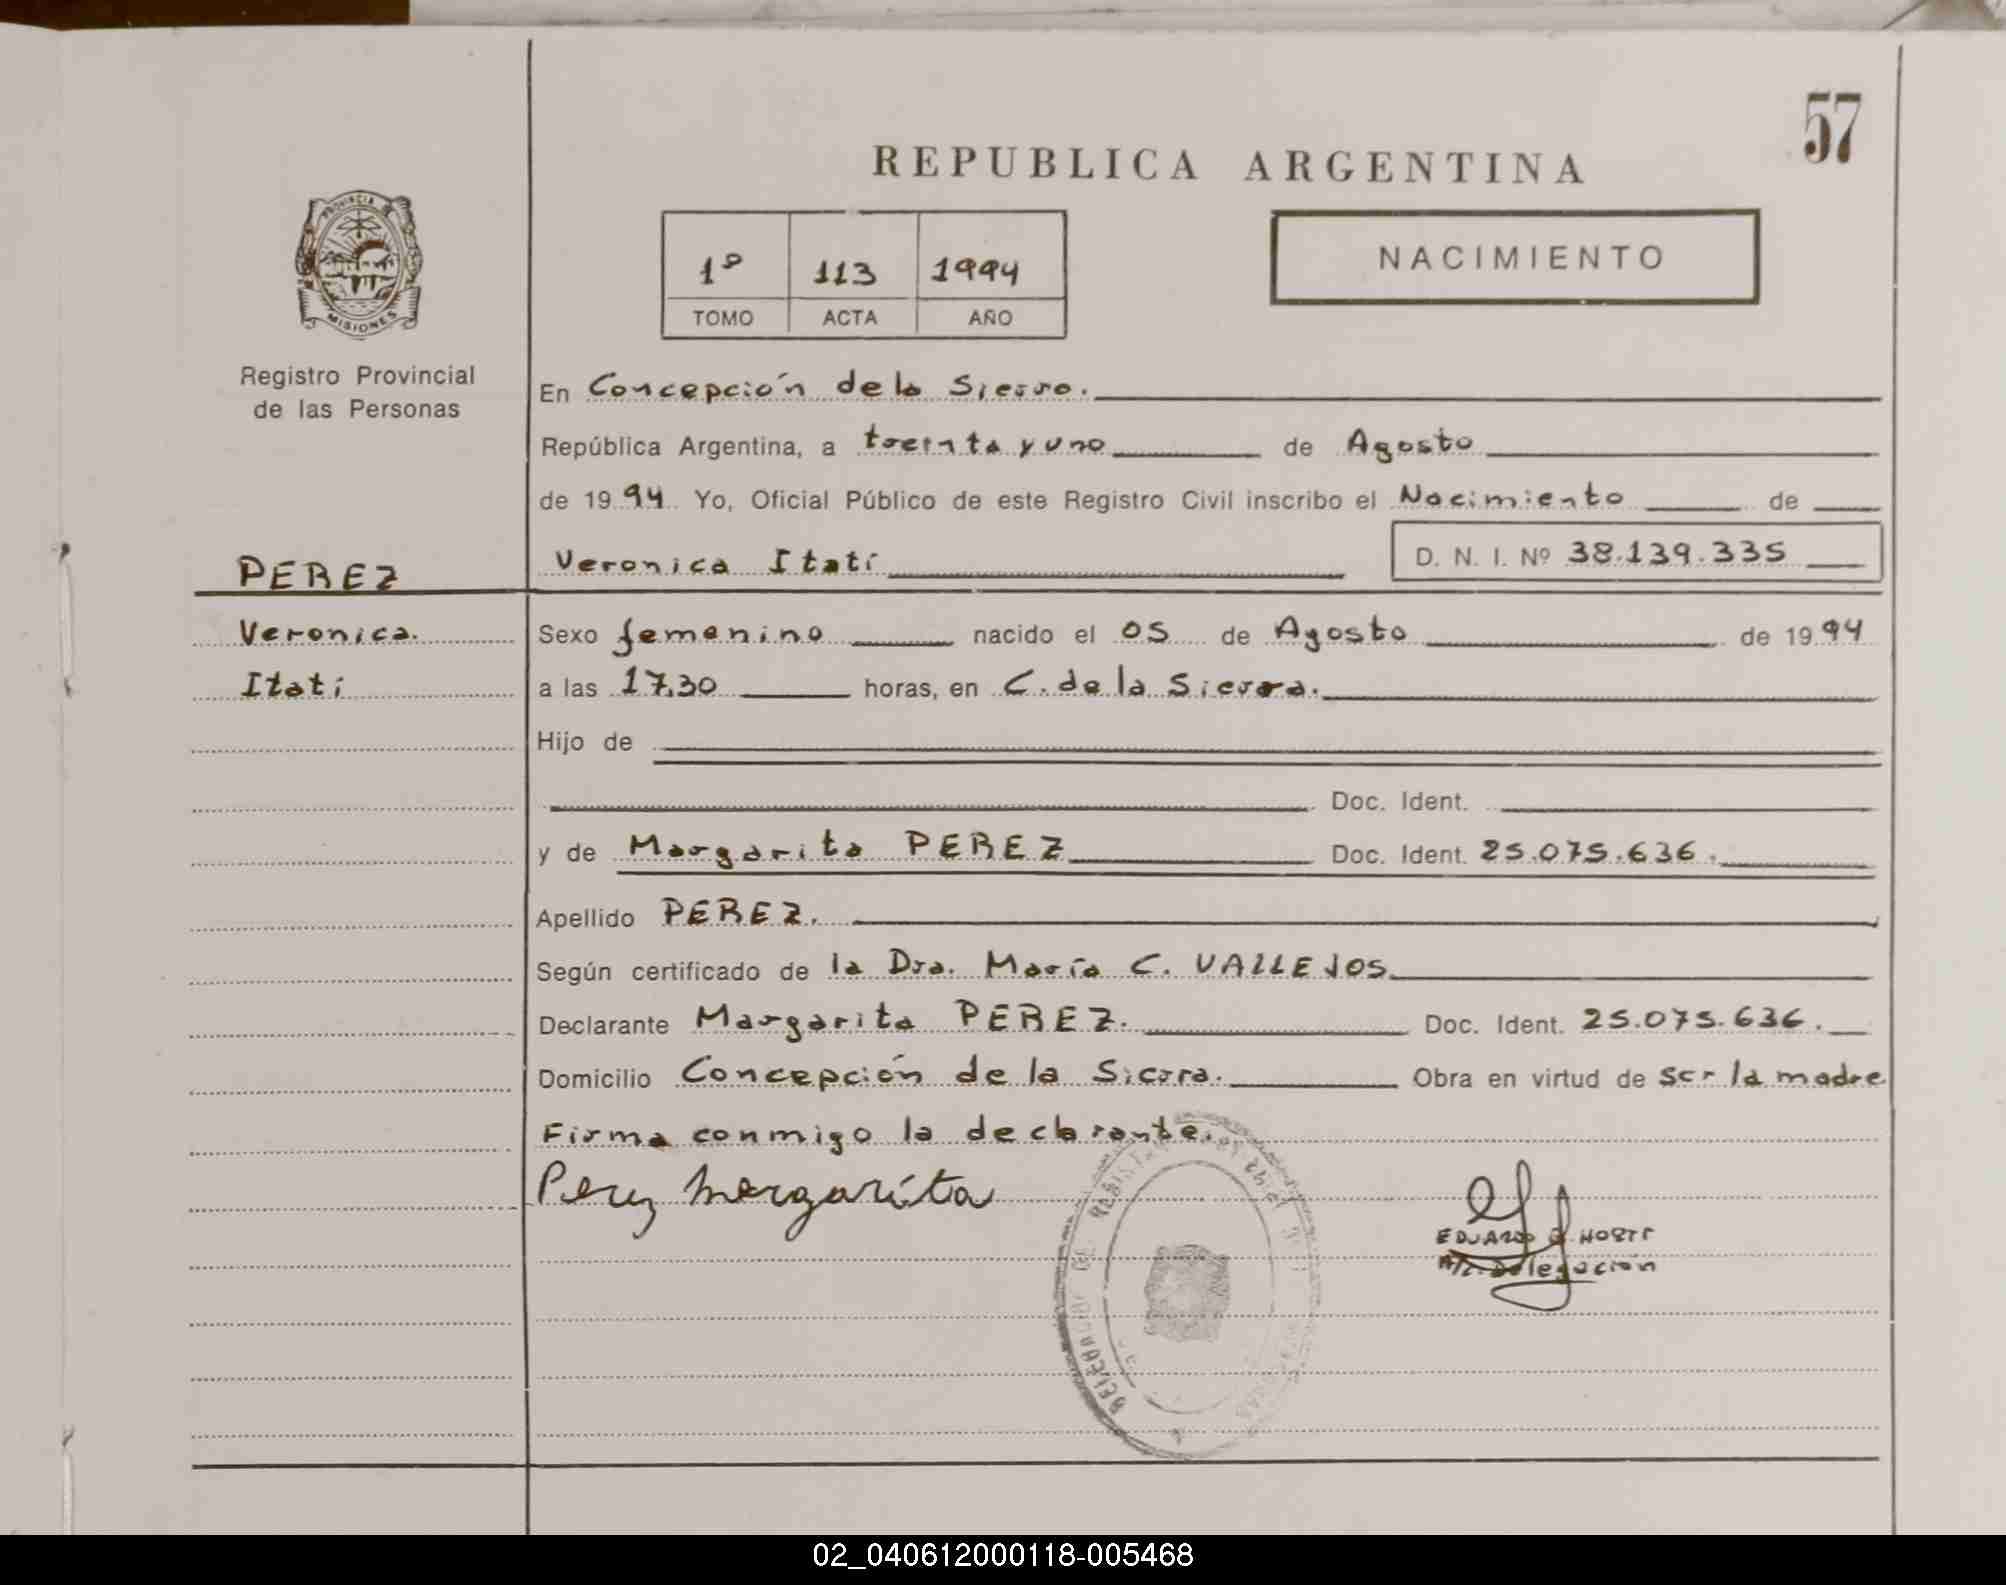 57
REPUBLICA ARGENTINA
PROVINCIA
MISIONES
1º 113 1994
TOMO ACTA AÑO
NACIMIENTO
Registro Provincial
de las Personas
En Concepción de la Sierra.
República Argentina, a treinta y uno de Agosto
de 1994 Yo, Oficial Público de este Registro Civil inscribo el Nacimiento de
PEREZ Veronica Itatí D. N. I. Nº 38.139.335
Veronica. Sexo femenino nacido el 05 de Agosto de 1994
Itatí a las 17,30 horas, en C. de la Sierra.
Hijo de
Doc. Ident.
y de Margarita PEREZ Doc. Ident. 25.075.636.
Apellido PEREZ.
Según certificado de la Dra. María C. VALLEJOS
Declarante Margarita PEREZ. Doc. Ident. 25.075.636.
Domicilio Concepción de la Sierra. Obra en virtud de ser la madre
Firma conmigo la declarante.
Perez Margarita
EDUARDO
Delegacion
02_040612000118-005468